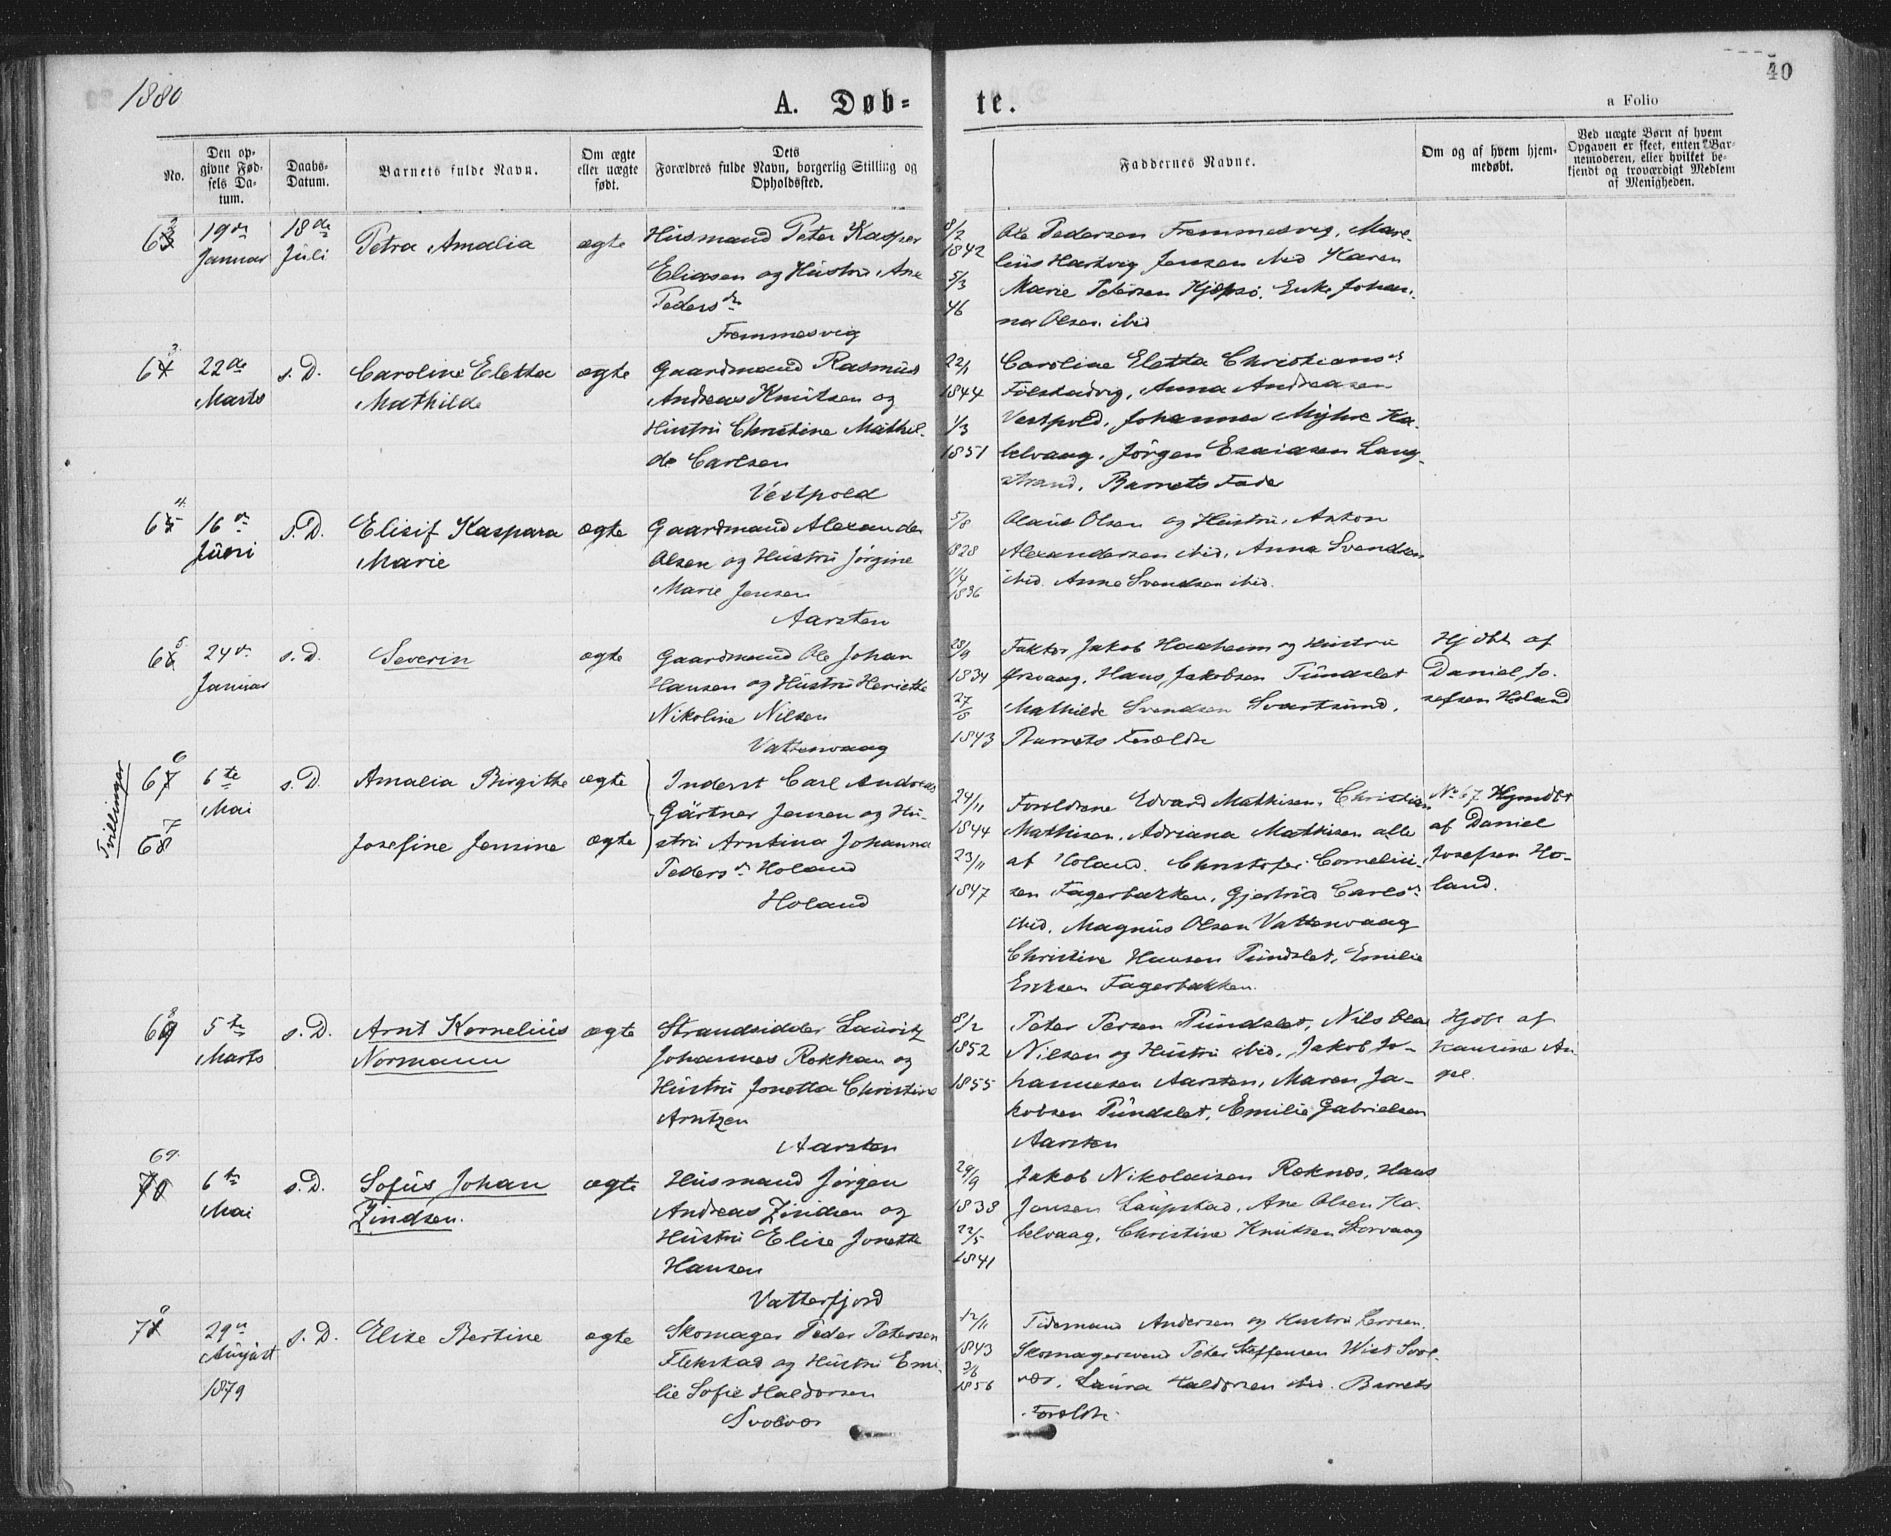 1880
40
A. Døb-
te.
a Folio
No.
Den op-
givne Fød-
sels Da-
tum.
Daabs-
Datum.
Barnets fulde Navn.
Om ægte
eller uægte
født.
Dets
Forældres fulde Navn, borgerlig Stilling og
Opholdssted.
Faddernes Navne.
Om og af hvem hjem-
medøbt.
Ved uægte Børn af hvem
Opgaven er skeet, enten Bar-
nemoderen, eller hvilket be-
kjendt og troværdigt Medlem
af Menigheden.
19de
Januar
18de
Juli
Petra Amalia
ægte
Husmand Peter Kasper
Eliasen og Hustru Ane
Peders dr
Fremmesvig
8/2
1842
5/3
46
Ole Pedersen Fremmesvig, Mare-
lius Hartvig Jensen ibid Karen
Marie Petersen Kjøpsø. Enke Johan-
na Olsen ibid
22de
Marts
s. D.
Caroline Eletta
Mathilde
ægte
Gaardmand Rasmus
Andreas Knutsen og
Hustru Christine Mathil-
de Carlsen
Vestpold
22/1
1844
1/3
1851
Caroline Eletta Christians dr
Følstadvig, Anna Andreasen
Vestpold, Johannes Myhre Ka-
belvaag, Jørgen Esaiasen Lang-
strand, Barnets Fader
16de
Juni
s. D.
Elisif Kaspara
Marie
ægte
Gaardmand Alexander
Olsen og Hustru Jørgine
Marie Jensen
Aarsten
5/8
1828
11/4
1836
Olaus Olsen og Hustru, Anton
Alexandersen ibid, Anna Svendsen
ibid. Anne Svendsen ibid.
24de
Januar
s. D.
Severin
ægte
Gaardmand Ole Johan
Hansen og Hustru Heriette
Nikoline Nilsen
Vattervaag
28/9
1834
27/8
1843
Faktor Jakob Haaheim og Hustru
Ørsvaag, Hans Jakobsen Pundslet
Mathilde Svendsen Svartsund,
Barnets Forældre
Hjdbt af
Daniel Jo-
sefsen Holand
Tvillinger
6te
Mai
s. D.
Amalia Birgitte
ægte
Josefine Jensine
ægte
Inderst Carl Andreas
Gärtner Jensen og Hu-
stru Arntina Johanna
Peders dr Holand
Holand
24/11
1844
23/11
1847
Forældrene Edvard Mathisen, Christian
Mathisen, Adriana Mathisen alle
af Holand. Christofer Corneliu-
sen Fagerbakken, Gjertrud Carls dr
ibid, Magnus Olsen Vattervaag
Christine Hansen Pundslet, Emilie
Eriksen Fagerbakken.
No 67 Hjmdbt
af Daniel
Josefsen Ho-
land.
5te
Marts
s. D.
Arnt Kornelius
Normann
ægte
Strandsidder Lauritz
Johannes Rekkan og
Hustru Jonetta Christine
Arntzen
Aarsten
8/2
1852
1855
Peter Persen Pundslet, Nils Olai
Nilsen og Hustru ibid, Jakob Jo-
hannesen Aarsten, Maren Ja-
kobsen Pundslet, Emilie Gabrielsen
Aarsten
Hjdbt af
69.
6te
Mai
s. D.
Sofus Johan
Zindsen.
ægte
Husmand Jørgen
Andreas Zindsen og
Hustru Elise Jonette
Hansen
Vatterfjord
29/9
1838
22/5
1841
Jakob Nikolaisen Reknes, Hans
Jensen Laupstad, Ane Olsen Ka-
belvaag, Christine Knutsen Skorvaag
29de
August
1879
s. D.
Elise Bertine
ægte
Skomager Peder Petersen
Flekstad og Hustru Emi-
lie Sofie Haldorsen
Svolvær
12/11
1843
2/6
1856
Tidemand Andersen og Hustru
Skomagersvend Peter Steffensen Wist Svol-
vær, Laura Haldorsen ibid. Barnets
Forældre.